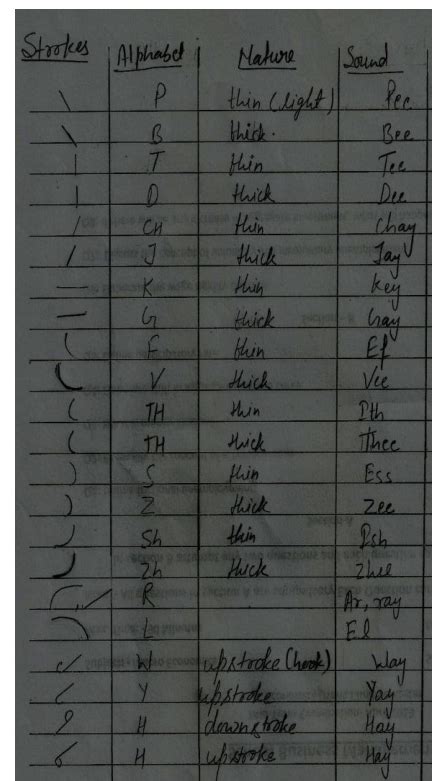 Strokes Alphabet Nature Sound
P thin (light) Pee
B thick. Bee
T thin Tee
D thick Dee
CH thin Chay
J thick Jay
K thin Key
G thick Gay
F thin Ef
V thick Vee
TH thin Ith
TH thick Thee
S thin Ess
Z thick Zee
Sh thin Ish
Zh thick Zhee
R Ar, ray
L El
W upstroke (hook) Way
Y upstroke Yay
H downstroke Hay
H upstroke Hay